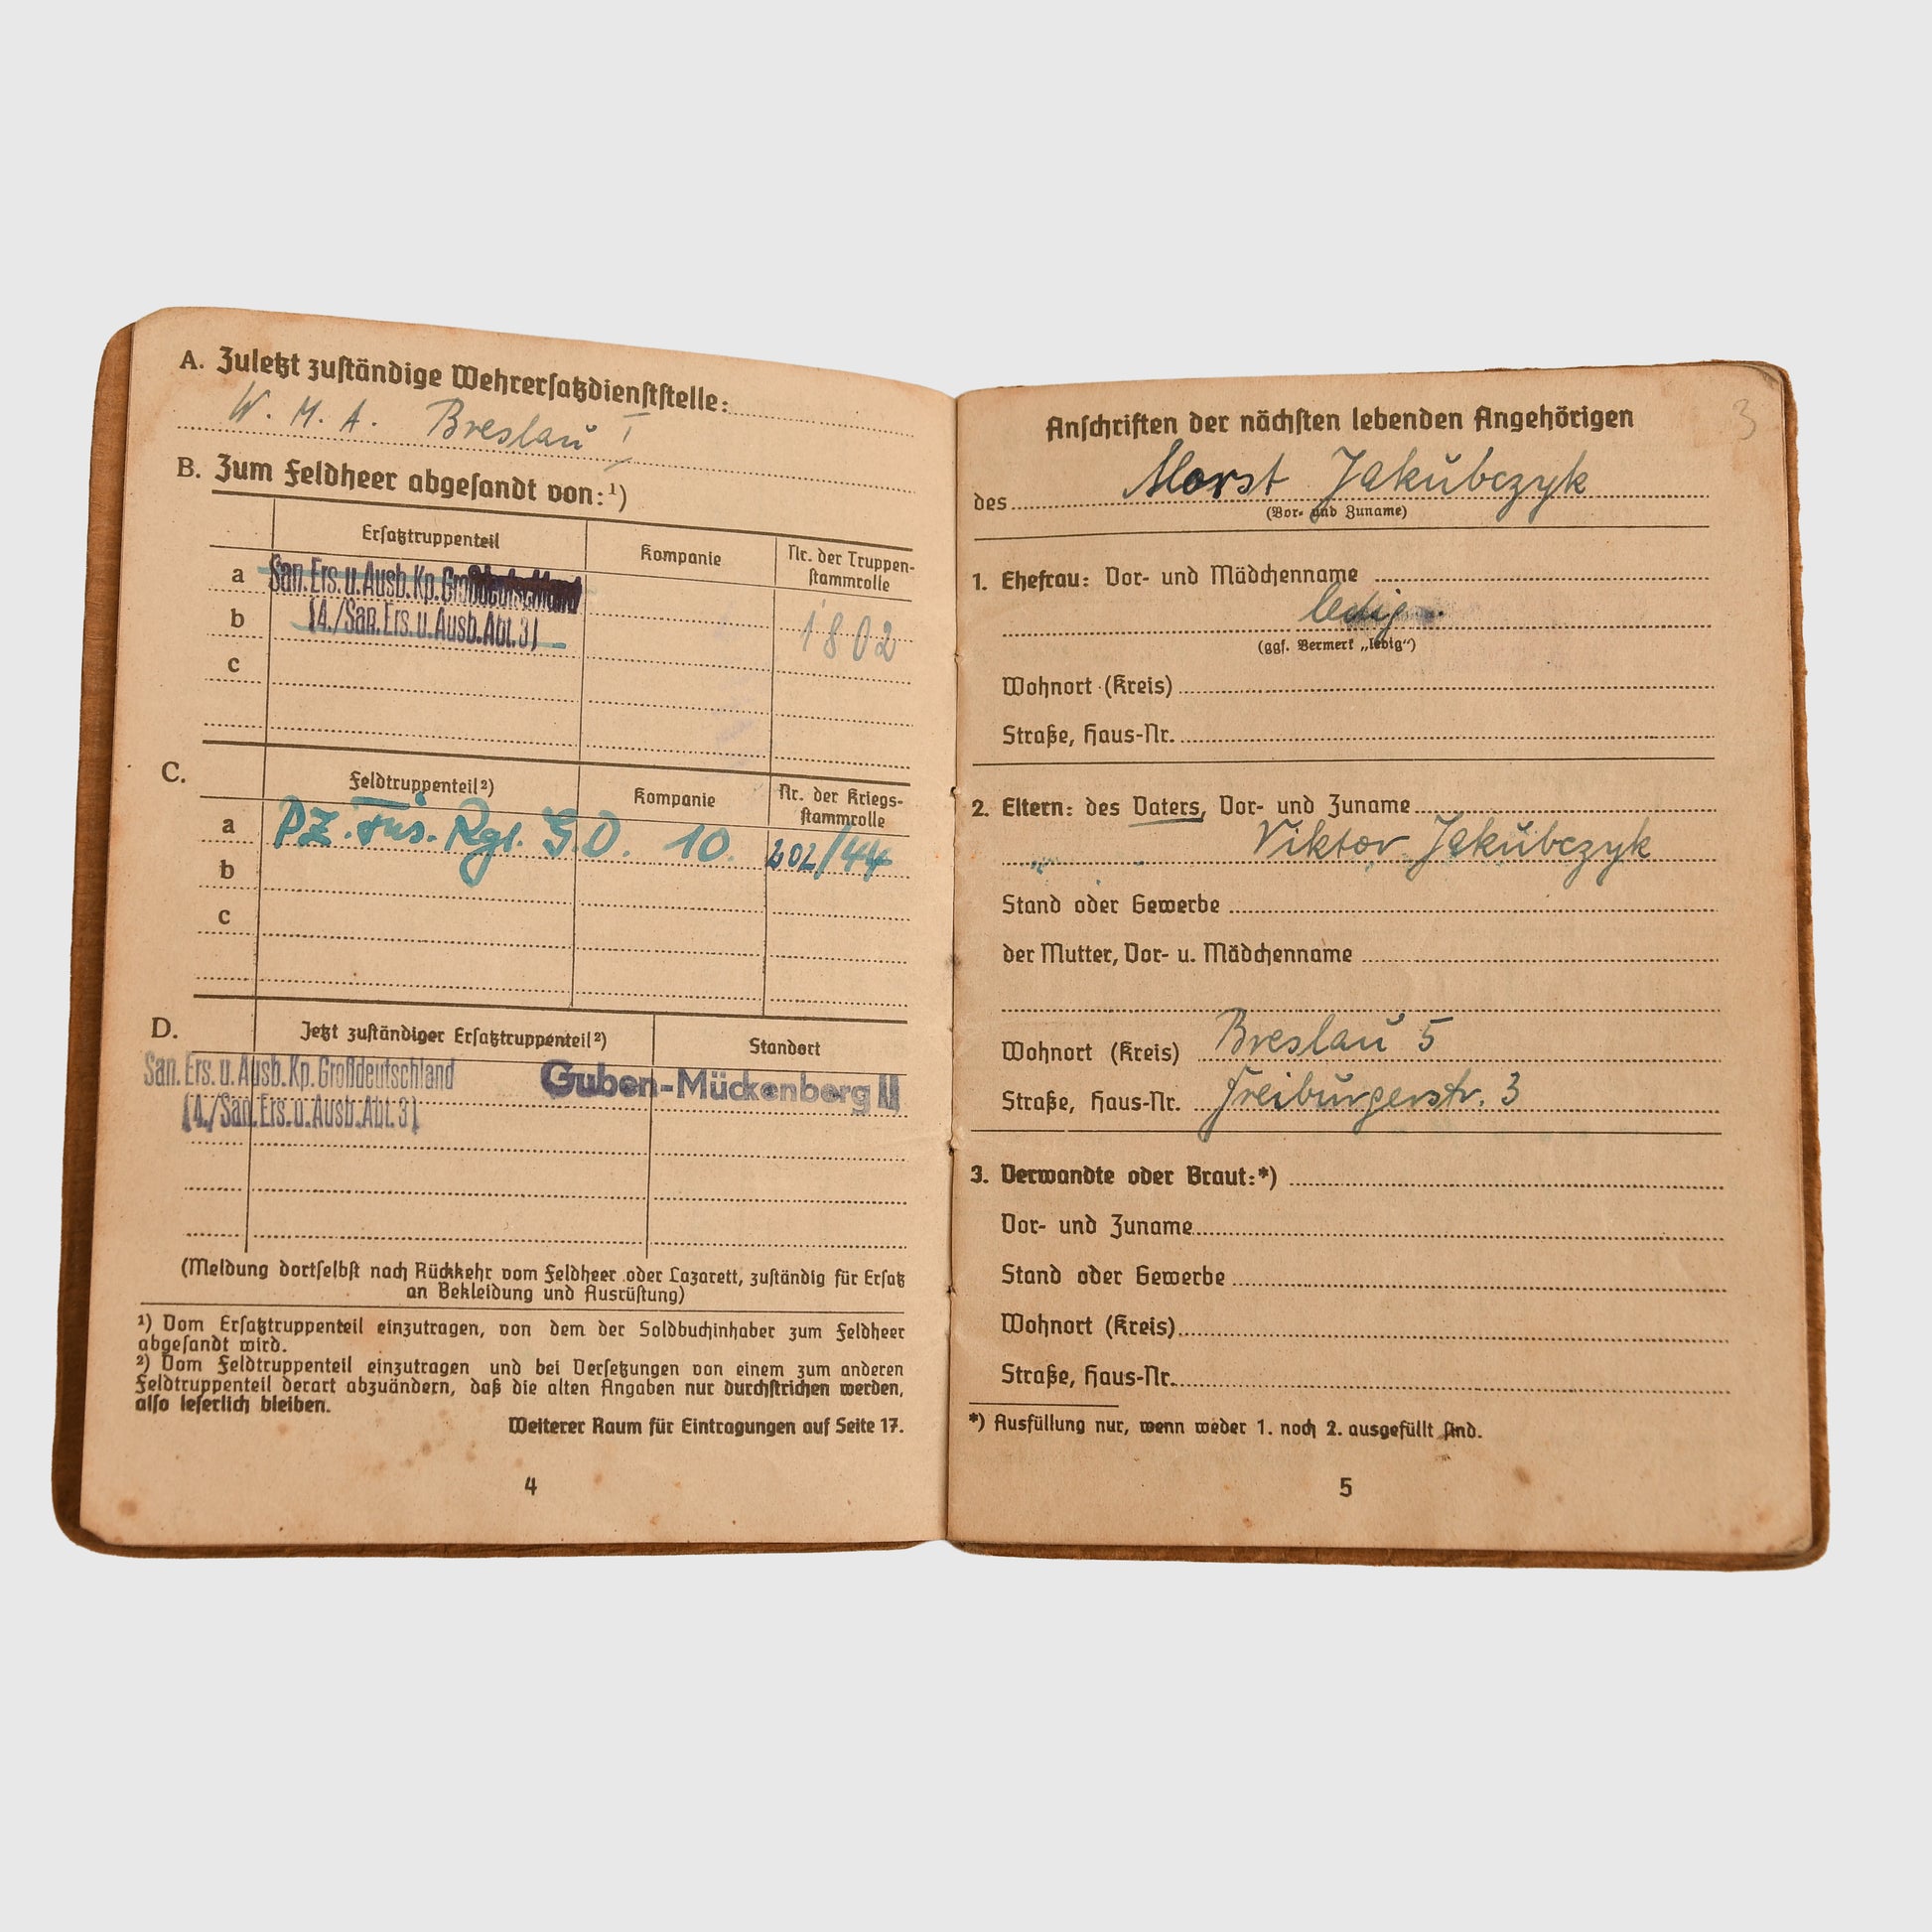 A. Zuletzt zuständige Wehrersatzdienststelle:
W. M. A. Breslau I
B. Zum Feldheer abgesandt von:¹)
Ersatztruppenteil
Kompanie
Nr. der Truppen-
stammrolle
a San. Ers. u. Ausb. Kp. Großdeutschland
b (4./San. Ers. u. Ausb. Abt. 3)
1802
c
C.
Feldtruppenteil²)
Kompanie
Nr. der Kriegs-
stammrolle
a Pz. Füs. Rgt. G.D. 10. 202/44
b
c
D.
Jetzt zuständiger Ersatztruppenteil²)
Standort
San. Ers. u. Ausb. Kp. Großdeutschland
Guben-Mückenberg II
(4./San. Ers. u. Ausb. Abt. 3)
(Meldung dortselbst nach Rückkehr vom Feldheer oder Lazarett, zuständig für Ersatz
an Bekleidung und Ausrüstung)
¹) Vom Ersatztruppenteil einzutragen, von dem der Soldbuchinhaber zum Feldheer
abgesandt wird.
²) Vom Feldtruppenteil einzutragen und bei Versetzungen von einem zum anderen
Feldtruppenteil derart abzuändern, daß die alten Angaben nur durchstrichen werden,
also leserlich bleiben.
Weiterer Raum für Eintragungen auf Seite 17.
4
3
Anschriften der nächsten lebenden Angehörigen
des Horst Jakubczyk
(Vor- und Zuname)
1. Ehefrau: Vor- und Mädchenname
ledig.
(ggf. Vermerk „ledig“)
Wohnort (Kreis)
Straße, Haus-Nr.
2. Eltern: des Vaters, Vor- und Zuname
Viktor Jakubczyk
Stand oder Gewerbe
der Mutter, Vor- u. Mädchenname
Wohnort (Kreis) Breslau 5
Straße, Haus-Nr. Freiburgerstr. 3
3. Verwandte oder Braut:*)
Vor- und Zuname
Stand oder Gewerbe
Wohnort (Kreis)
Straße, Haus-Nr.
*) Ausfüllung nur, wenn weder 1. noch 2. ausgefüllt sind.
5